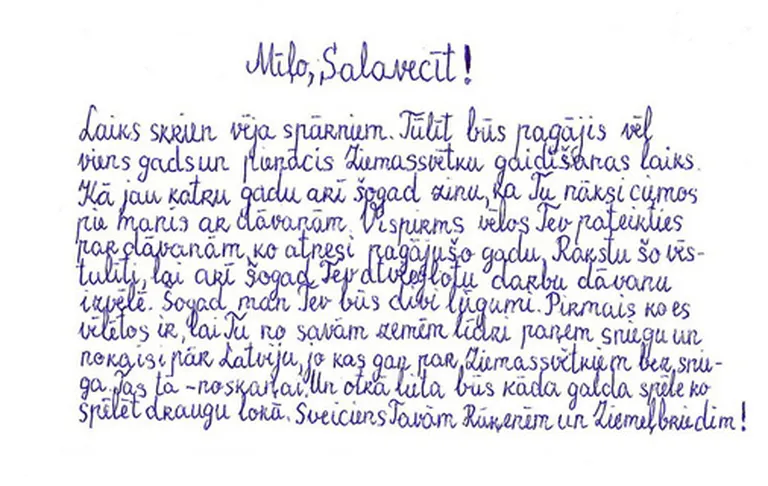 Mīļo, Salavecīt!
Laiks skrien vēja spārniem. Tūlīt būs pagājis vēl
viens gads un pienācis Ziemassvētku gaidīšanas laiks.
Kā jau katru gadu arī šogad zinu, ka Tu nāksi ciemos
pie manis ar dāvanām. Vispirms vēlos Tev pateikties
par dāvanām, ko atnesi pagājušo gadu. Rakstu šo vēs-
tulīti, lai arī šogad Tev atvieglotu darbu dāvanu
izvēlē. Šogad man Tev būs divi lūgumi. Pirmais ko es
vēlētos ir, lai Tu no savām zemēm līdzi paņem sniegu un
nokaisi pār Latviju, jo kas gan par Ziemassvētkiem bez snie-
ga. Tas tā - noskaņai. Un otrā lieta būs kāda galda spēle ko
spēlēt draugu lokā. Sveiciens Tavām Rūķenēm un Ziemeļbriedim!